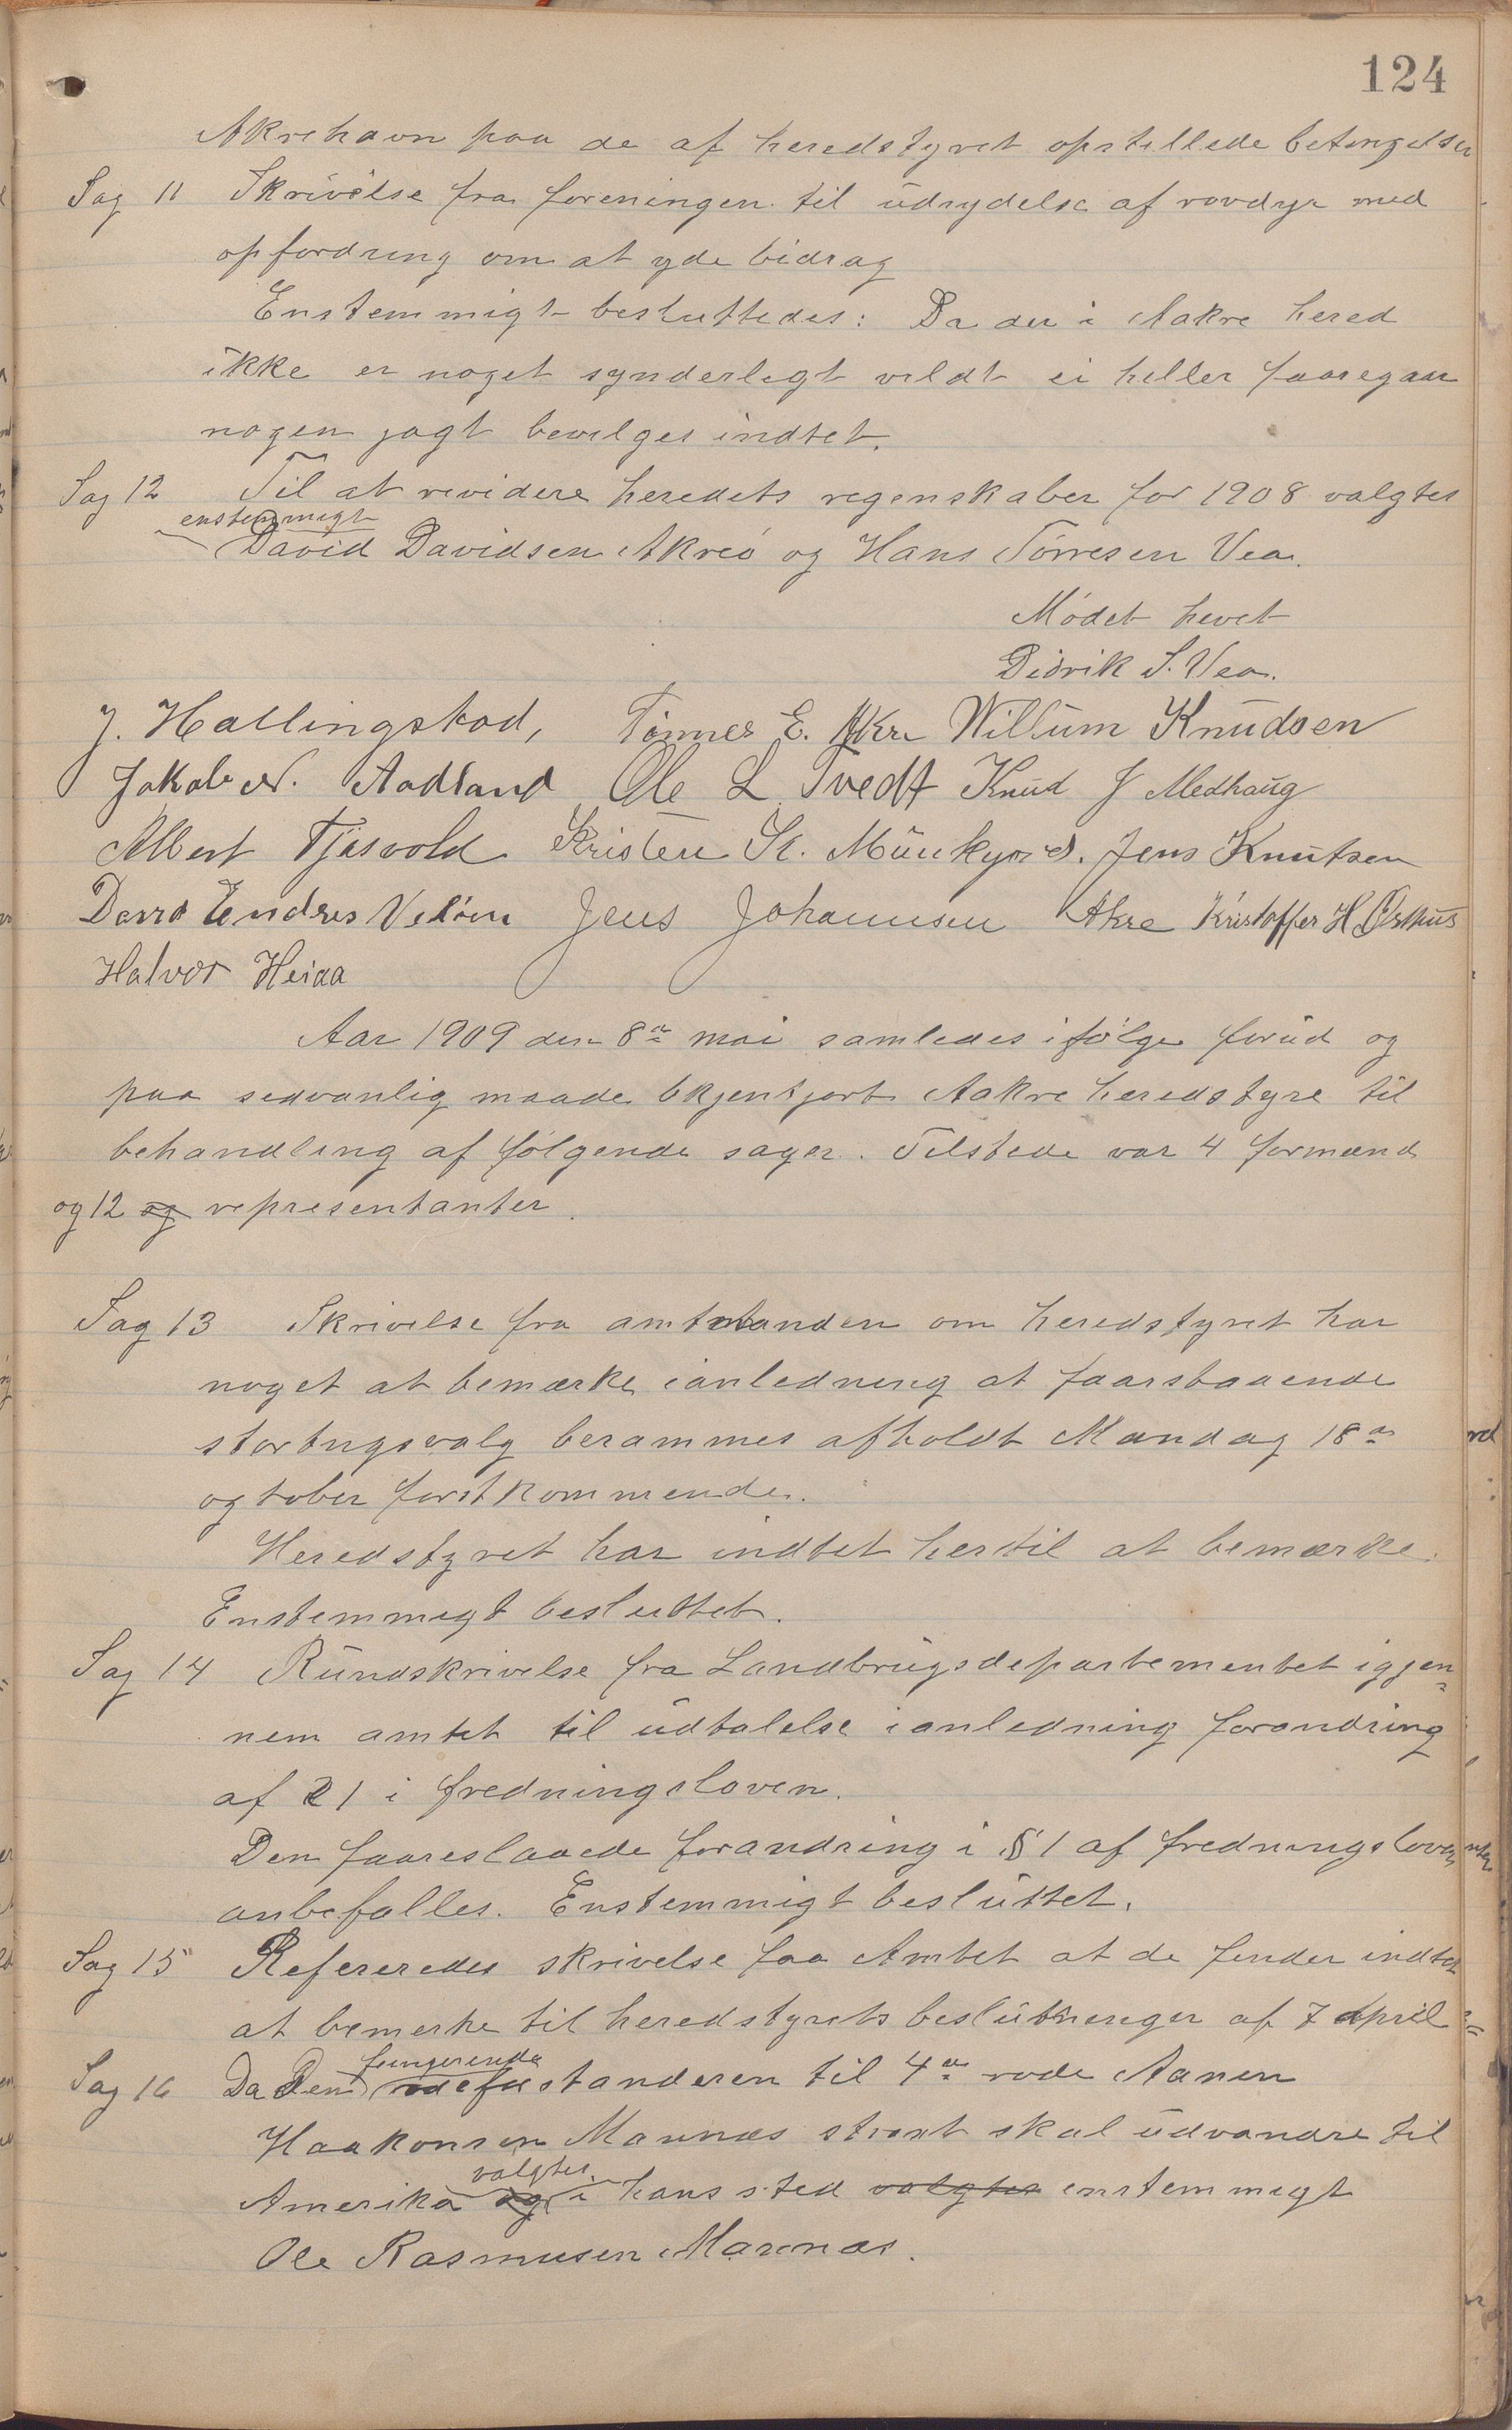 124
Akrehavn paa de af heredstyret opstillede betingelser
Sag 11 Skrivelse fra foreningen til udrydelse af rovdyr med
opfordring om at yde bidrag
Enstemmigt besluttedes: Da der i Aakre hered
ikke er noget synderligt vildt ei heller faaregaar
nogen jagt bevilges indtet.
Sag 12 Til at revidere heredets regenskaber for 1908 valgtes
enstemmigt
David Davidsen Akreö og Hans Törresen Vea.
Mödet hevet
Didrik S. Vea.
J. Hallingstad, Tönnes E. Akre Willum Knudsen
Jakob N. Aadland Ole L Tvedt Knud J Medhaug
Albert Tjösvold Kristen St. Munkejord. Jens Knutsen
David Endres Veløen Jens Johannesen Akre Kristoffer H. Østhus
Halvor Heiaa
Aar 1909 den 8de mai samledes ifölge forud og
paa sedvanlig maade bkjentjort Aakre heredstyre til
behandling af fölgende sager. Tilstede var 4 formænd
og 12 og representanter.
Sag 13 Skrivelse fra amtmanden om heredstyret har
noget at bemærke ianledning at faarstaaende
stortngsvalg berammes afholdt Mandag 18de
ogtober förstkommende.
Heredstyret har indtet hertil at bemærke.
Enstemmigt besluttet.
Sag 14 Rundskrivelse fra Landbrugsdepartementet igjen-
nem amtet til udtalelse ianledning forandring
af § 1 i fredningsloven.
Den faareslaaede forandring i § 1 af fredningsloven
anbefalles. Enstemmigt besluttet.
Sag 15 Refereredes skrivelse faa Amtet at de finder indtet
at bemerke til heredstyrets beslutninger af 7 April
fungerende
Sag 16 Da Den standeren til 4de rode Aanen
Haakonsen Mannes straxt skal udvandre til
valgtes
Amerika og i hans sted valgtes enstemmigt
Ole Rasmusen Mannes.